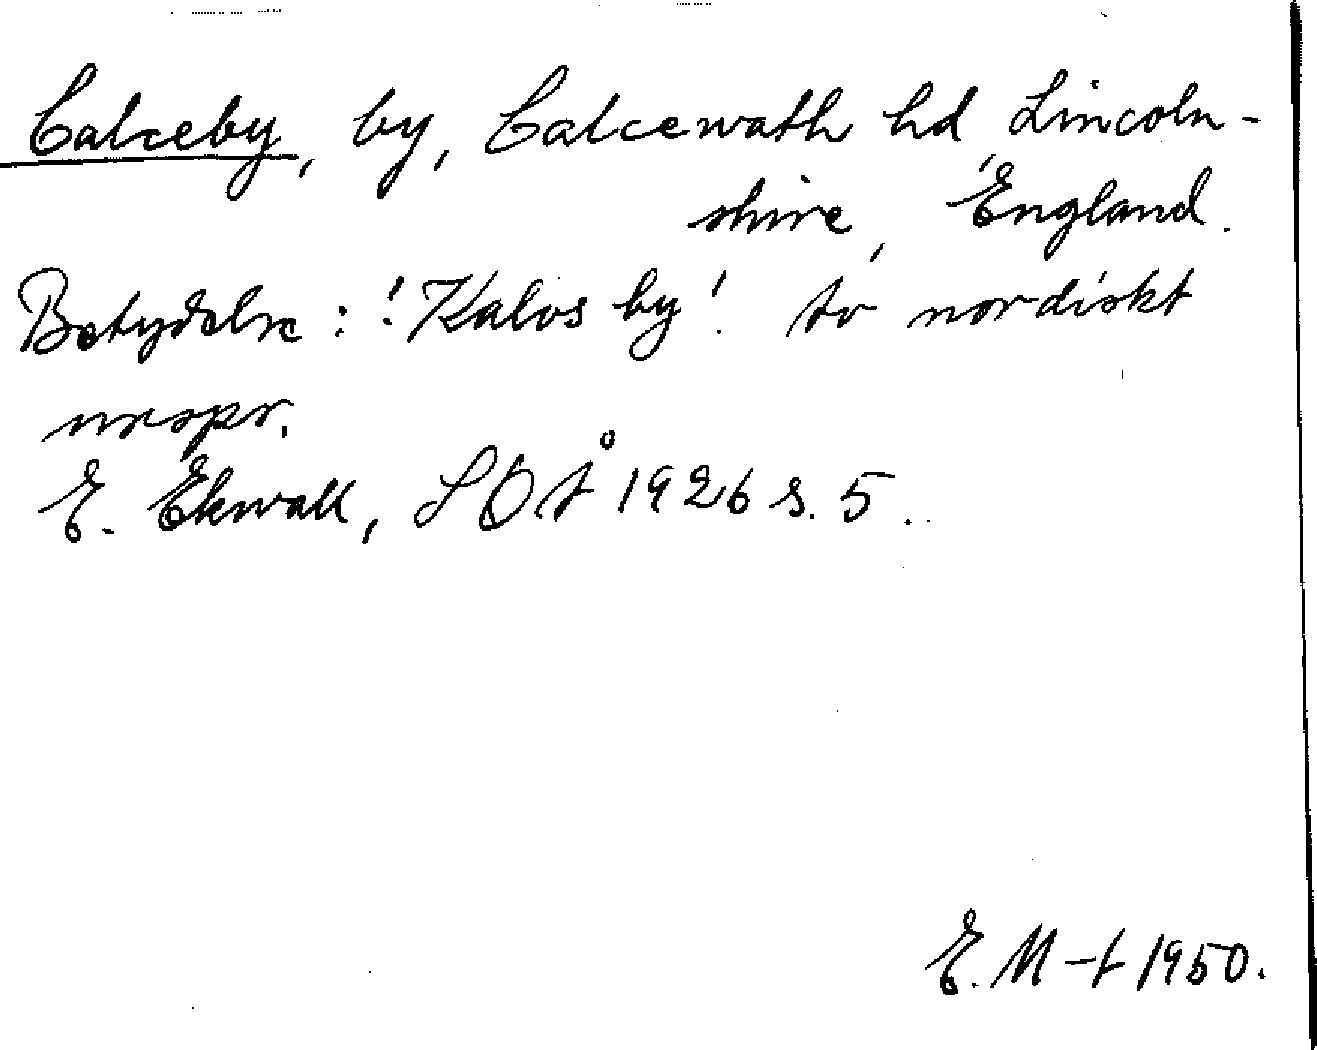 Calceby, by, Calcewath hd, Lincoln-
shire, England.
Betydelse: 'Kalvs by'. Av nordiskt
urspr.
E. Ekwall, SOÅ 1926 s. 5.
E. M-t 1950.